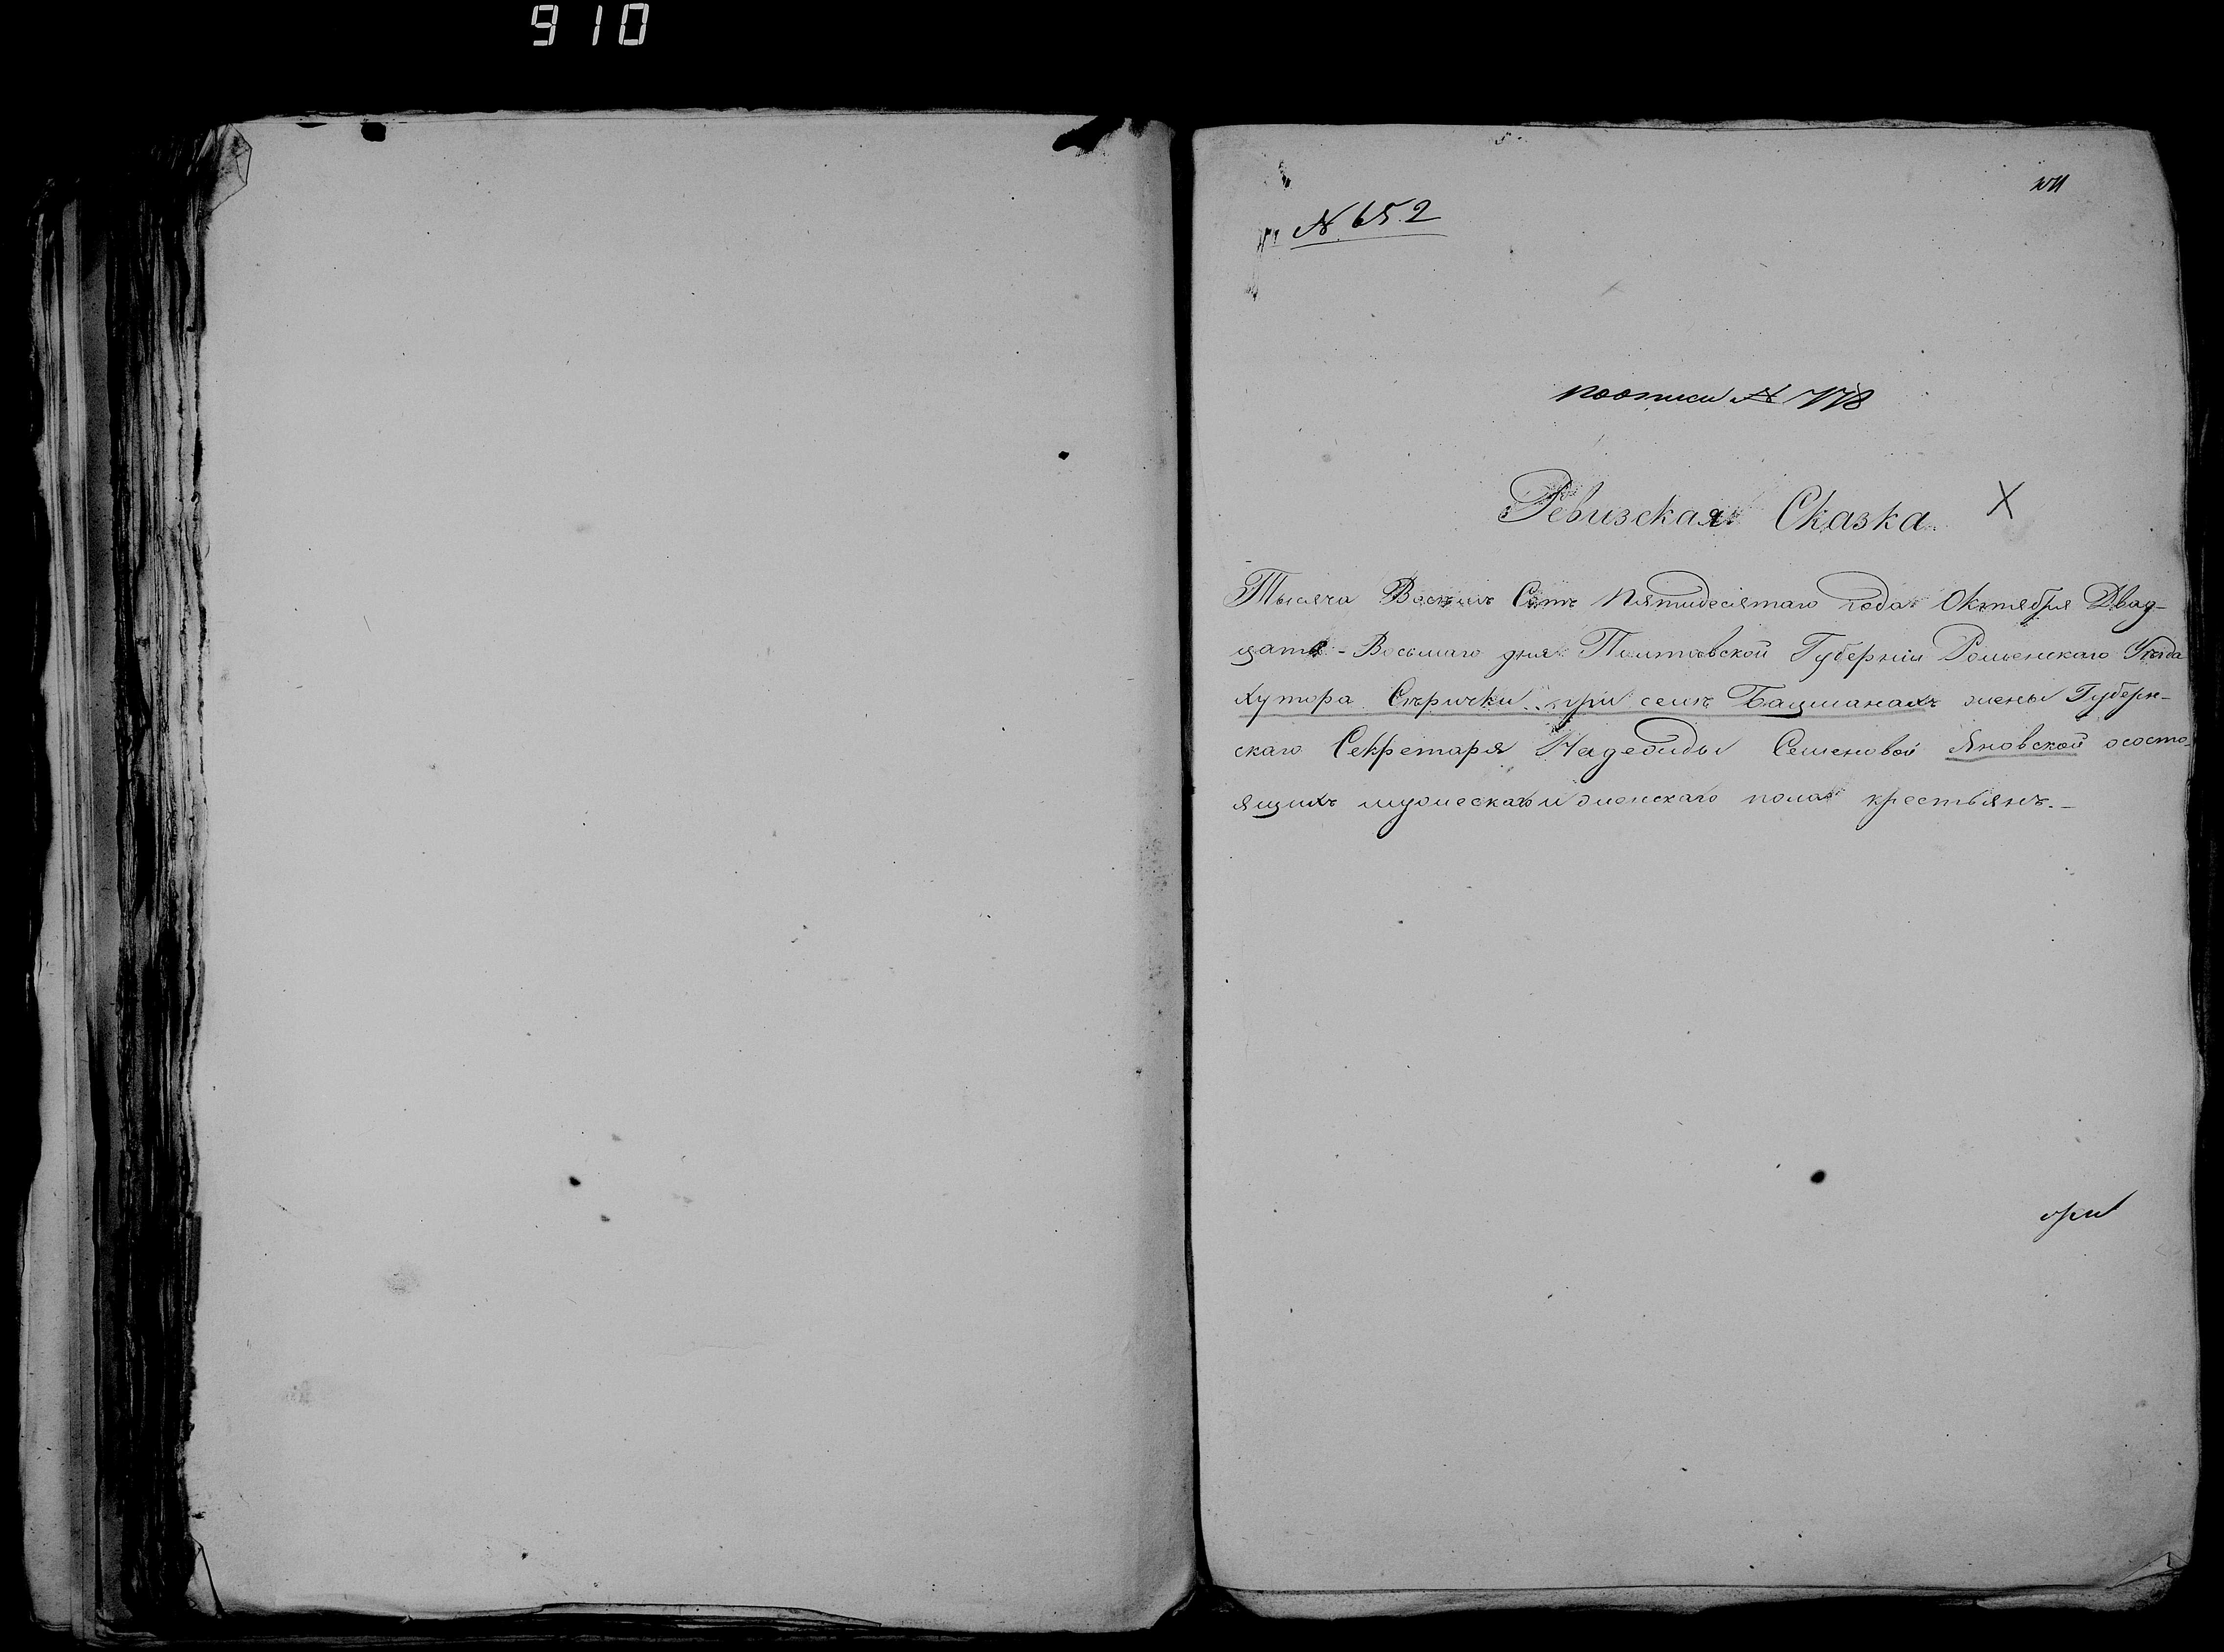 910
№ 652
по описи № 778
Ревизская Сказка
Тысяча Восемь Сотъ Пятидесятаго года Октября Двад-
цать-Восьмаго дня Полтавской Губерніи Роменскаго Уѣзда
хутора при селѣ Бацманахъ жены Губерн-
скаго Секретаря Надежиды Семеновой Яновской ососто-
ящихъ мужескаго и женскаго пола крестьянъ.-